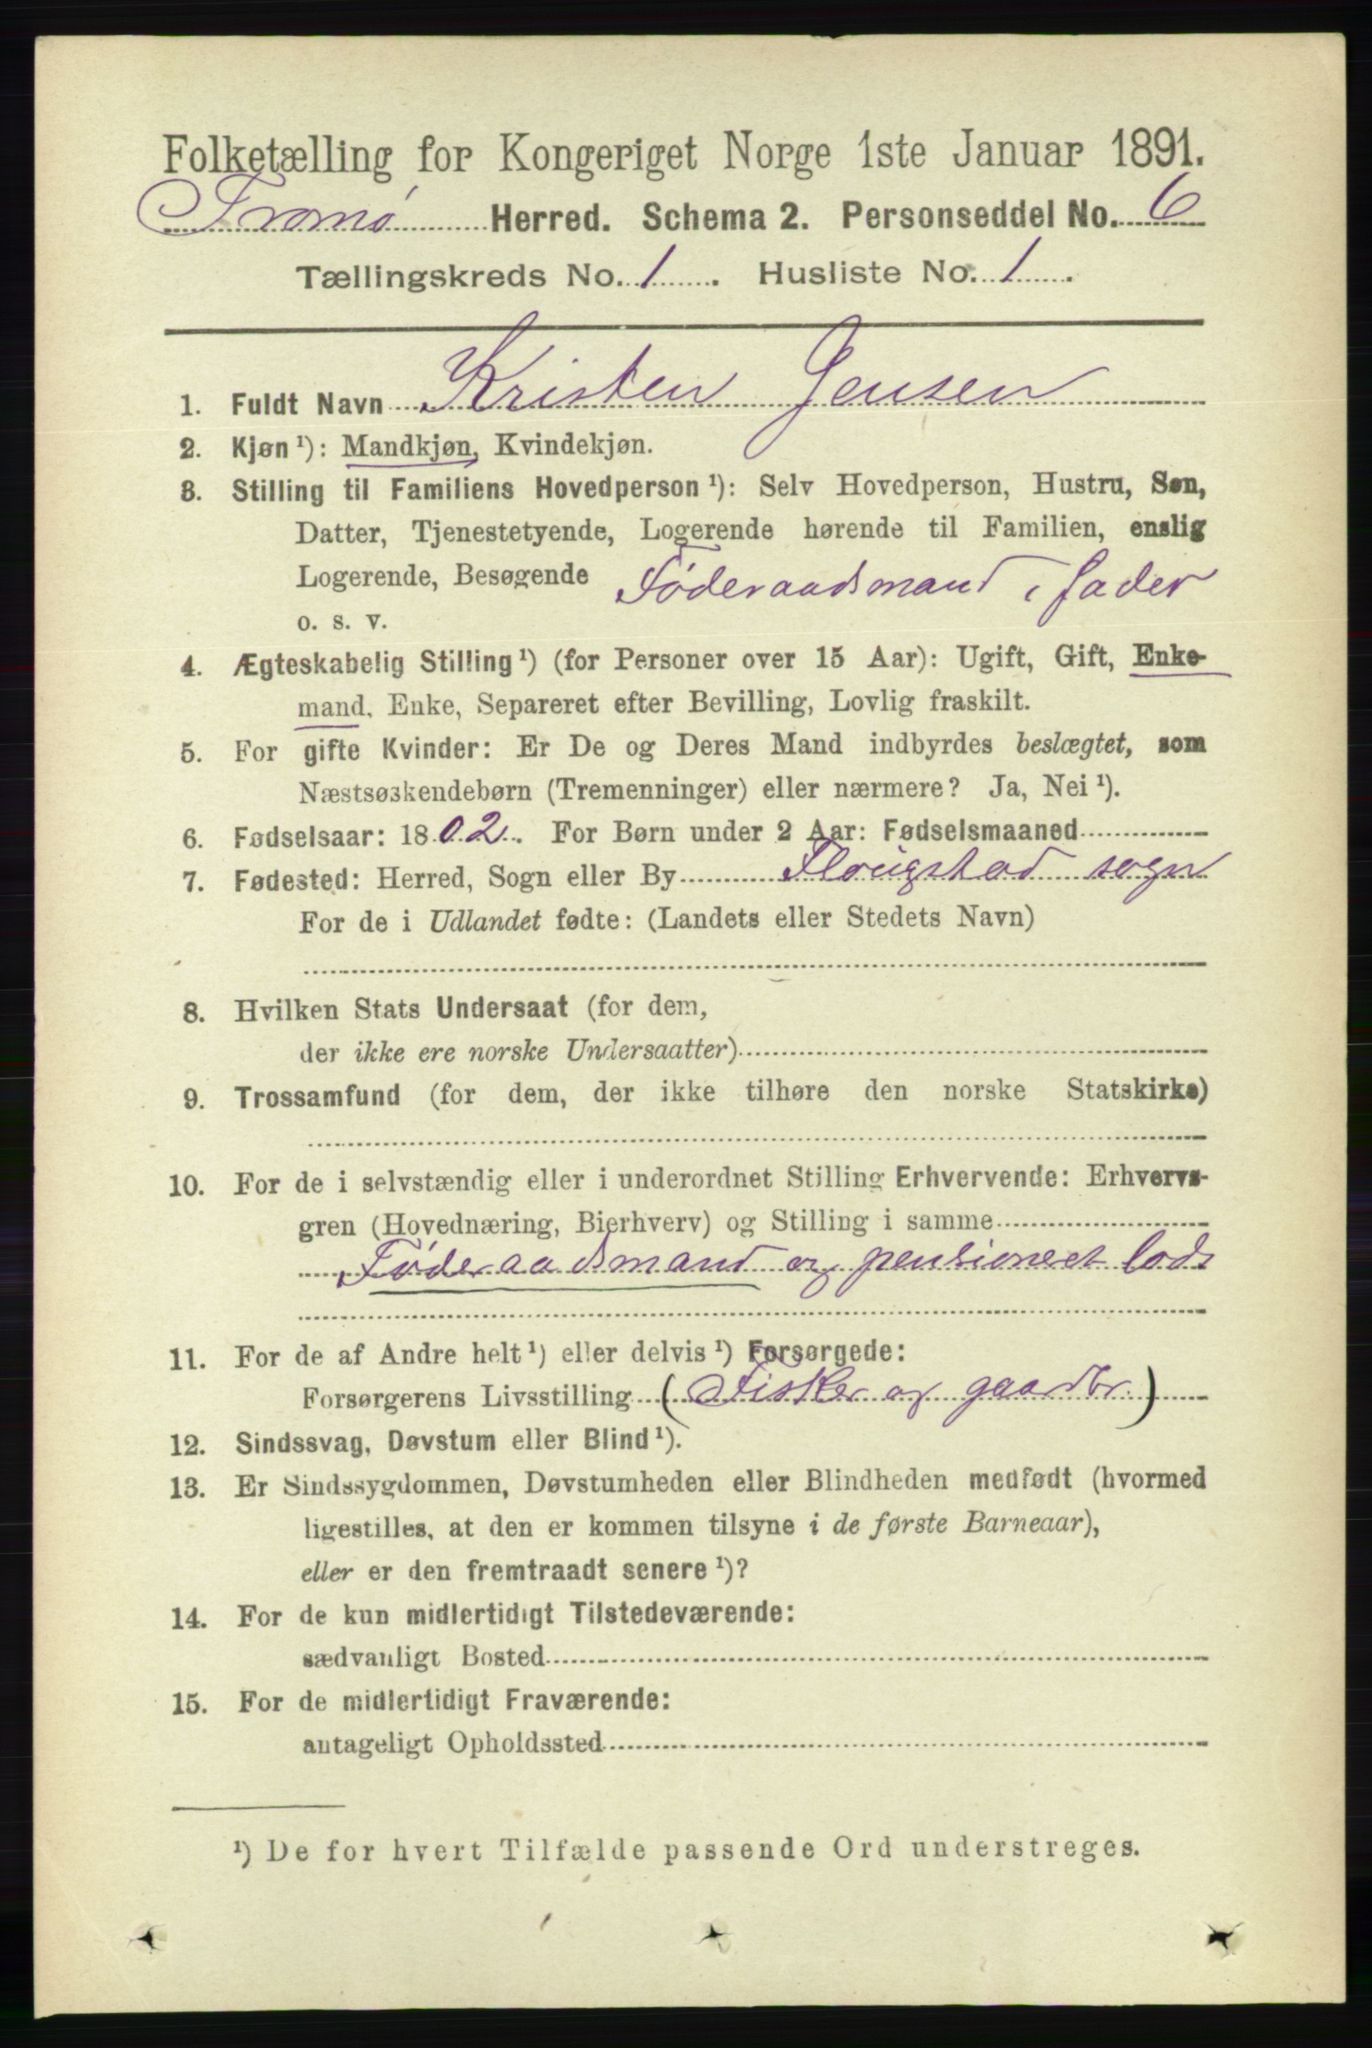 Folketælling for Kongeriget Norge 1ste Januar 1891.
Tromø Herred. Schema 2. Personseddel No. 6
Tællingskreds No. 1. Husliste No. 1.
1. Fuldt Navn Kristen Jensen
2. Kjøn¹): Mandkjøn, Kvindekjøn.
3. Stilling til Familiens Hovedperson¹): Selv Hovedperson, Hustru, Søn,
Datter, Tjenestetyende, Logerende hørende til Familien, enslig
Logerende, Besøgende Føderaadsmand, fader
o. s. v.
4. Ægteskabelig Stilling¹) (for Personer over 15 Aar): Ugift, Gift, Enke-
mand, Enke, Separeret efter Bevilling, Lovlig fraskilt.
5. For gifte Kvinder: Er De og Deres Mand indbyrdes beslægtet, som
Næstsøskendebørn (Tremenninger) eller nærmere? Ja, Nei¹).
6. Fødselsaar: 1802. For Børn under 2 Aar: Fødselsmaaned
7. Fødested: Herred, Sogn eller By sogn
For de i Udlandet fødte: (Landets eller Stedets Navn)
8. Hvilken Stats Undersaat (for dem,
der ikke ere norske Undersaatter)
9. Trossamfund (for dem, der ikke tilhøre den norske Statskirke)
10. For de i selvstændig eller i underordnet Stilling Erhvervende: Erhvervs-
gren (Hovednæring, Bierhverv) og Stilling i samme
Føderaadsmand og pensioneret lods
11. For de af Andre helt¹) eller delvis¹) Forsørgede:
Forsørgerens Livsstilling (Fisker og gaardbr.)
12. Sindssvag, Døvstum eller Blind¹).
13. Er Sindssygdommen, Døvstumheden eller Blindheden medfødt (hvormed
ligestilles, at den er kommen tilsyne i de første Barneaar),
eller er den fremtraadt senere¹)?
14. For de kun midlertidigt Tilstedeværende:
sædvanligt Bosted
15. For de midlertidigt Fraværende:
antageligt Opholdssted
¹) De for hvert Tilfælde passende Ord understreges.